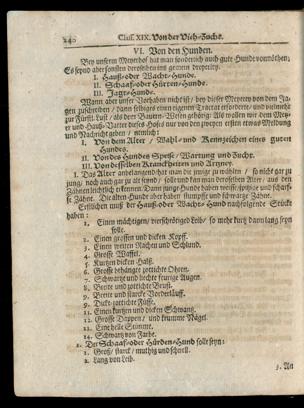 240 Class. XIX. Von der Vieh-Zucht.
VI. Von den Hunden.
Bey unserm Meyerhof hat man sonderlich auch gute Hunde vonnöthen;
Es seynd aber sonsten derselben ins gemein dreyerley.
I. Hauß- oder Wacht-Hunde.
II. Schaaf- oder Hürden-Hunde.
III. Jagt-Hunde.
Mann aber unser Vorhaben nicht ist / bey dieser Meyerey von dem Ja-
gen zuschreiben / dann selbiges einen eigenen Tractat erforderte / und vielmehr
zur Fürstl. Lust / als der Bauern-Wesen gehörig: Als wollen wir dem Mey-
er und Hauß-Vatter dieses Hofs nur von den zweyen ersten etwas Meldung
und Nachricht geben / nemlich:
I. Von dem Alter / Wahl- und Kennzeichen eines guten
Hundes.
II. Von des Hundes Speise / Wartung und Zucht.
III. Von desselben Kranckheiten und Artzney.
I. Das Alter anbelangend / hat man die junge zu wählen / so nicht gar zu
jung / noch auch gar zu alt seynd / sollt
und kan man derselben Alter / aus den
Zähnen leichtlich erkennen: Dann junge Hunde haben weisse / spitzige und scharf-
fe Zähne. Die alten Hunde aber haben stumpffe und schwartze Zähne.
Erstlichen muß der Hauß- oder Wacht-Hund nachfolgende Stück
haben:
1. Einen mächtigen / vierschrötigen Leib / so mehr kurtz dann lang seyn
solle.
2. Einen grossen und dicken Kopff.
3. Einen weiten Rachen und Schlund.
4. Grosse Waffel.
5. Kurtzen dicken Halß.
6. Grosse behängte zottichte Ohren.
7. Schwartze und liechte feurige Augen.
8. Breite und zottichte Brust.
9. Breite und starcke Vorderläuff.
10. Dicke zottichte Füsse.
11. Einen kurtzen und dicken Schwantz.
12. Grosse Dappen / und krumme Nägel.
13. Eine helle Stimme.
14. Schwartz von Farbe.
2. Der Schaaf- oder Hürden-Hund solle seyn:
1. Groß / starck / muthig und schnell.
2. Lang von Leib.
3. An